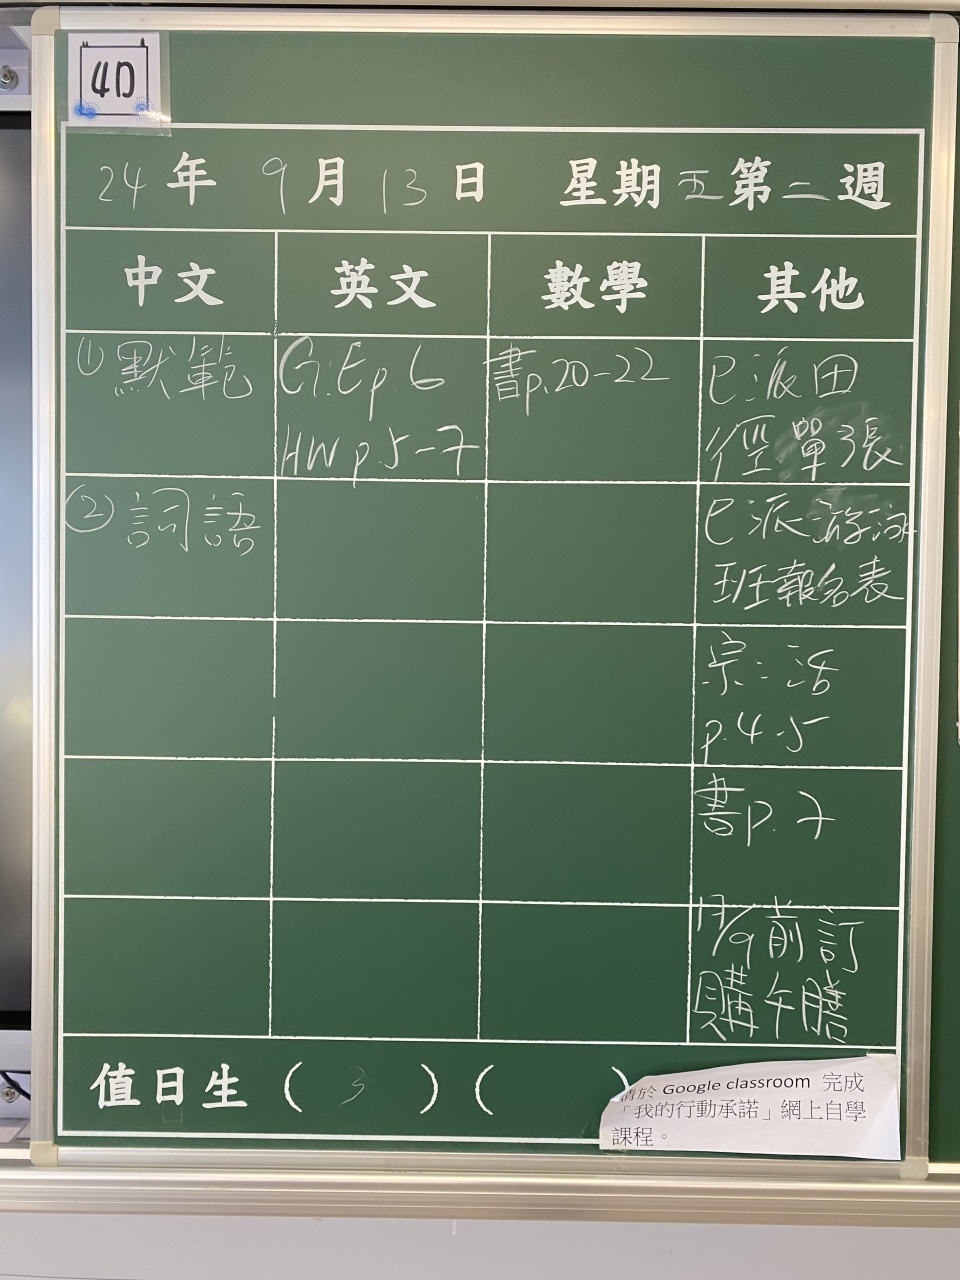 4D
24年 9月13日 星期五第二週
中文 英文 數學 其他
①默範
G.E p.6
HW p.5-7
書p.20-22
已派田
徑單張
②詞語
已派游泳
班報名表
宗:活
p.4-5
書p.7
17/9前訂
購午膳
值日生( 3 )( )
請於 Google classroom 完成
「我的行動承諾」網上自學
課程。